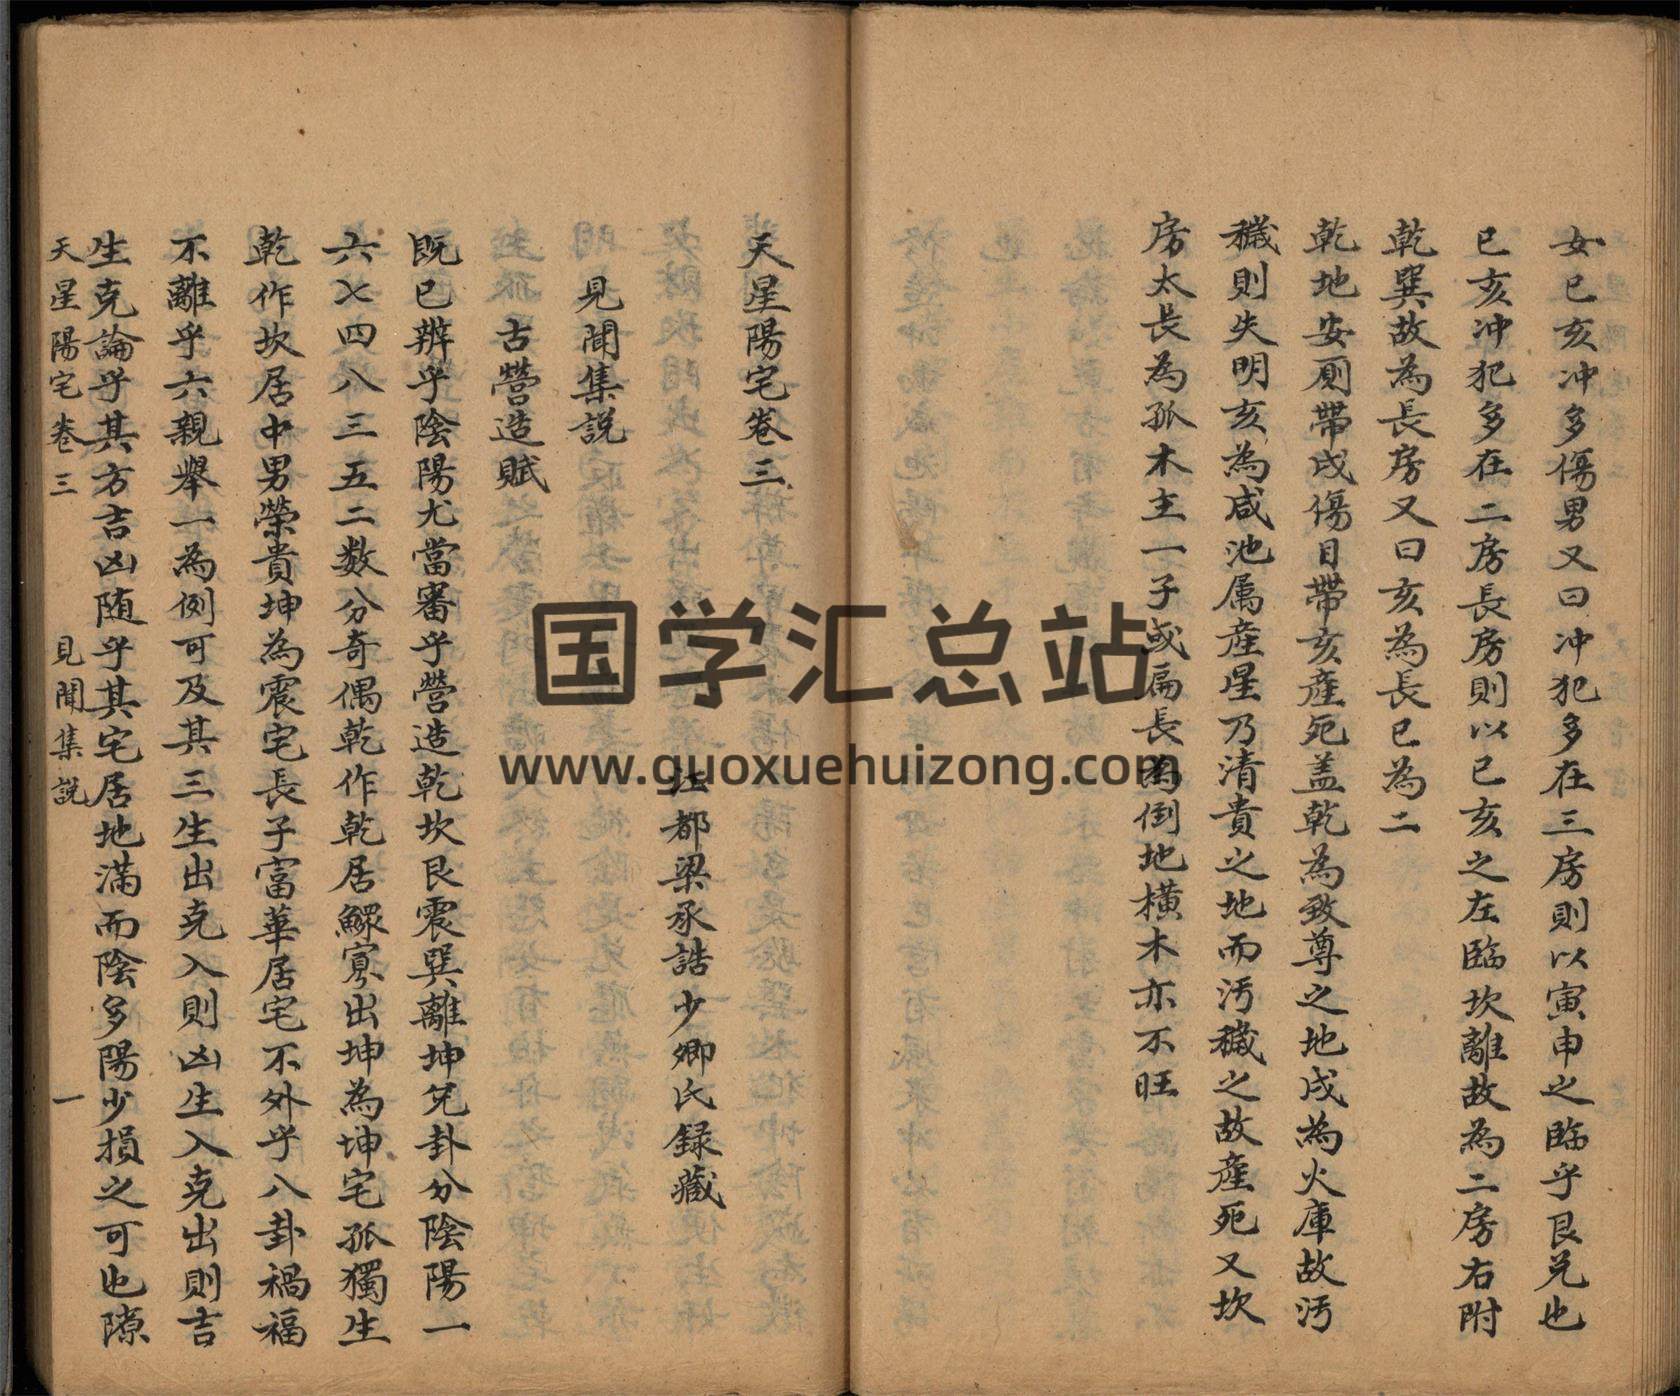 女巳亥冲多傷男又曰冲犯多在三房則以寅申之臨乎艮兑也
巳亥冲犯多在二房長房則以巳亥之左臨坎離故為二房右附
乾巽故為長房又曰亥為長巳為二
乾地安厠帶戌傷目帶亥産死盖乾為致尊之地戌為火庫故汚
穢則失明亥為咸池属産星乃清貴之地而汚穢之故産死又坎
房太長為孤木主一子或扁長為倒地横木亦不旺
天星陽宅卷三
江都梁承誥少卿氏録藏
見聞集説
古營造賦
既已辨乎陰陽尤當審乎營造乾坎艮震巽離坤兑卦分陰陽一
六七四八三五二数分奇偶乾作乾居鰥寡出坤為坤宅孤獨生
乾作坎居中男榮貴坤為震宅長子富華居宅不外乎八卦禍福
不離乎六親舉一為例可及其三生出克入則凶生入克出則吉
生克論乎其方吉凶随乎其宅居地滿而陰多陽少損之可也隙
天星陽宅卷三 見聞集説 一
国学汇总站
www.guoxuehuizong.com